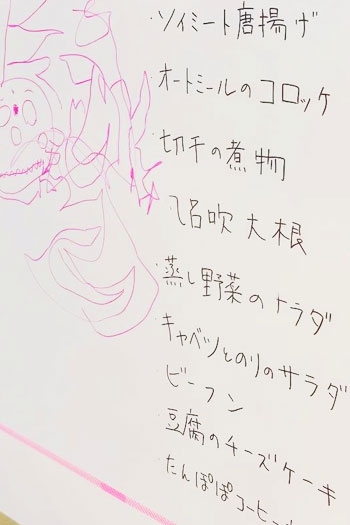 ・ソイミート唐揚げ
・オートミールのコロッケ
・切干の煮物
吹大根
・蒸し野菜のサラダ
・キャベツとのりのサラダ
・ビーフン
・豆腐のチーズケーキ
・たんぽぽコーヒー